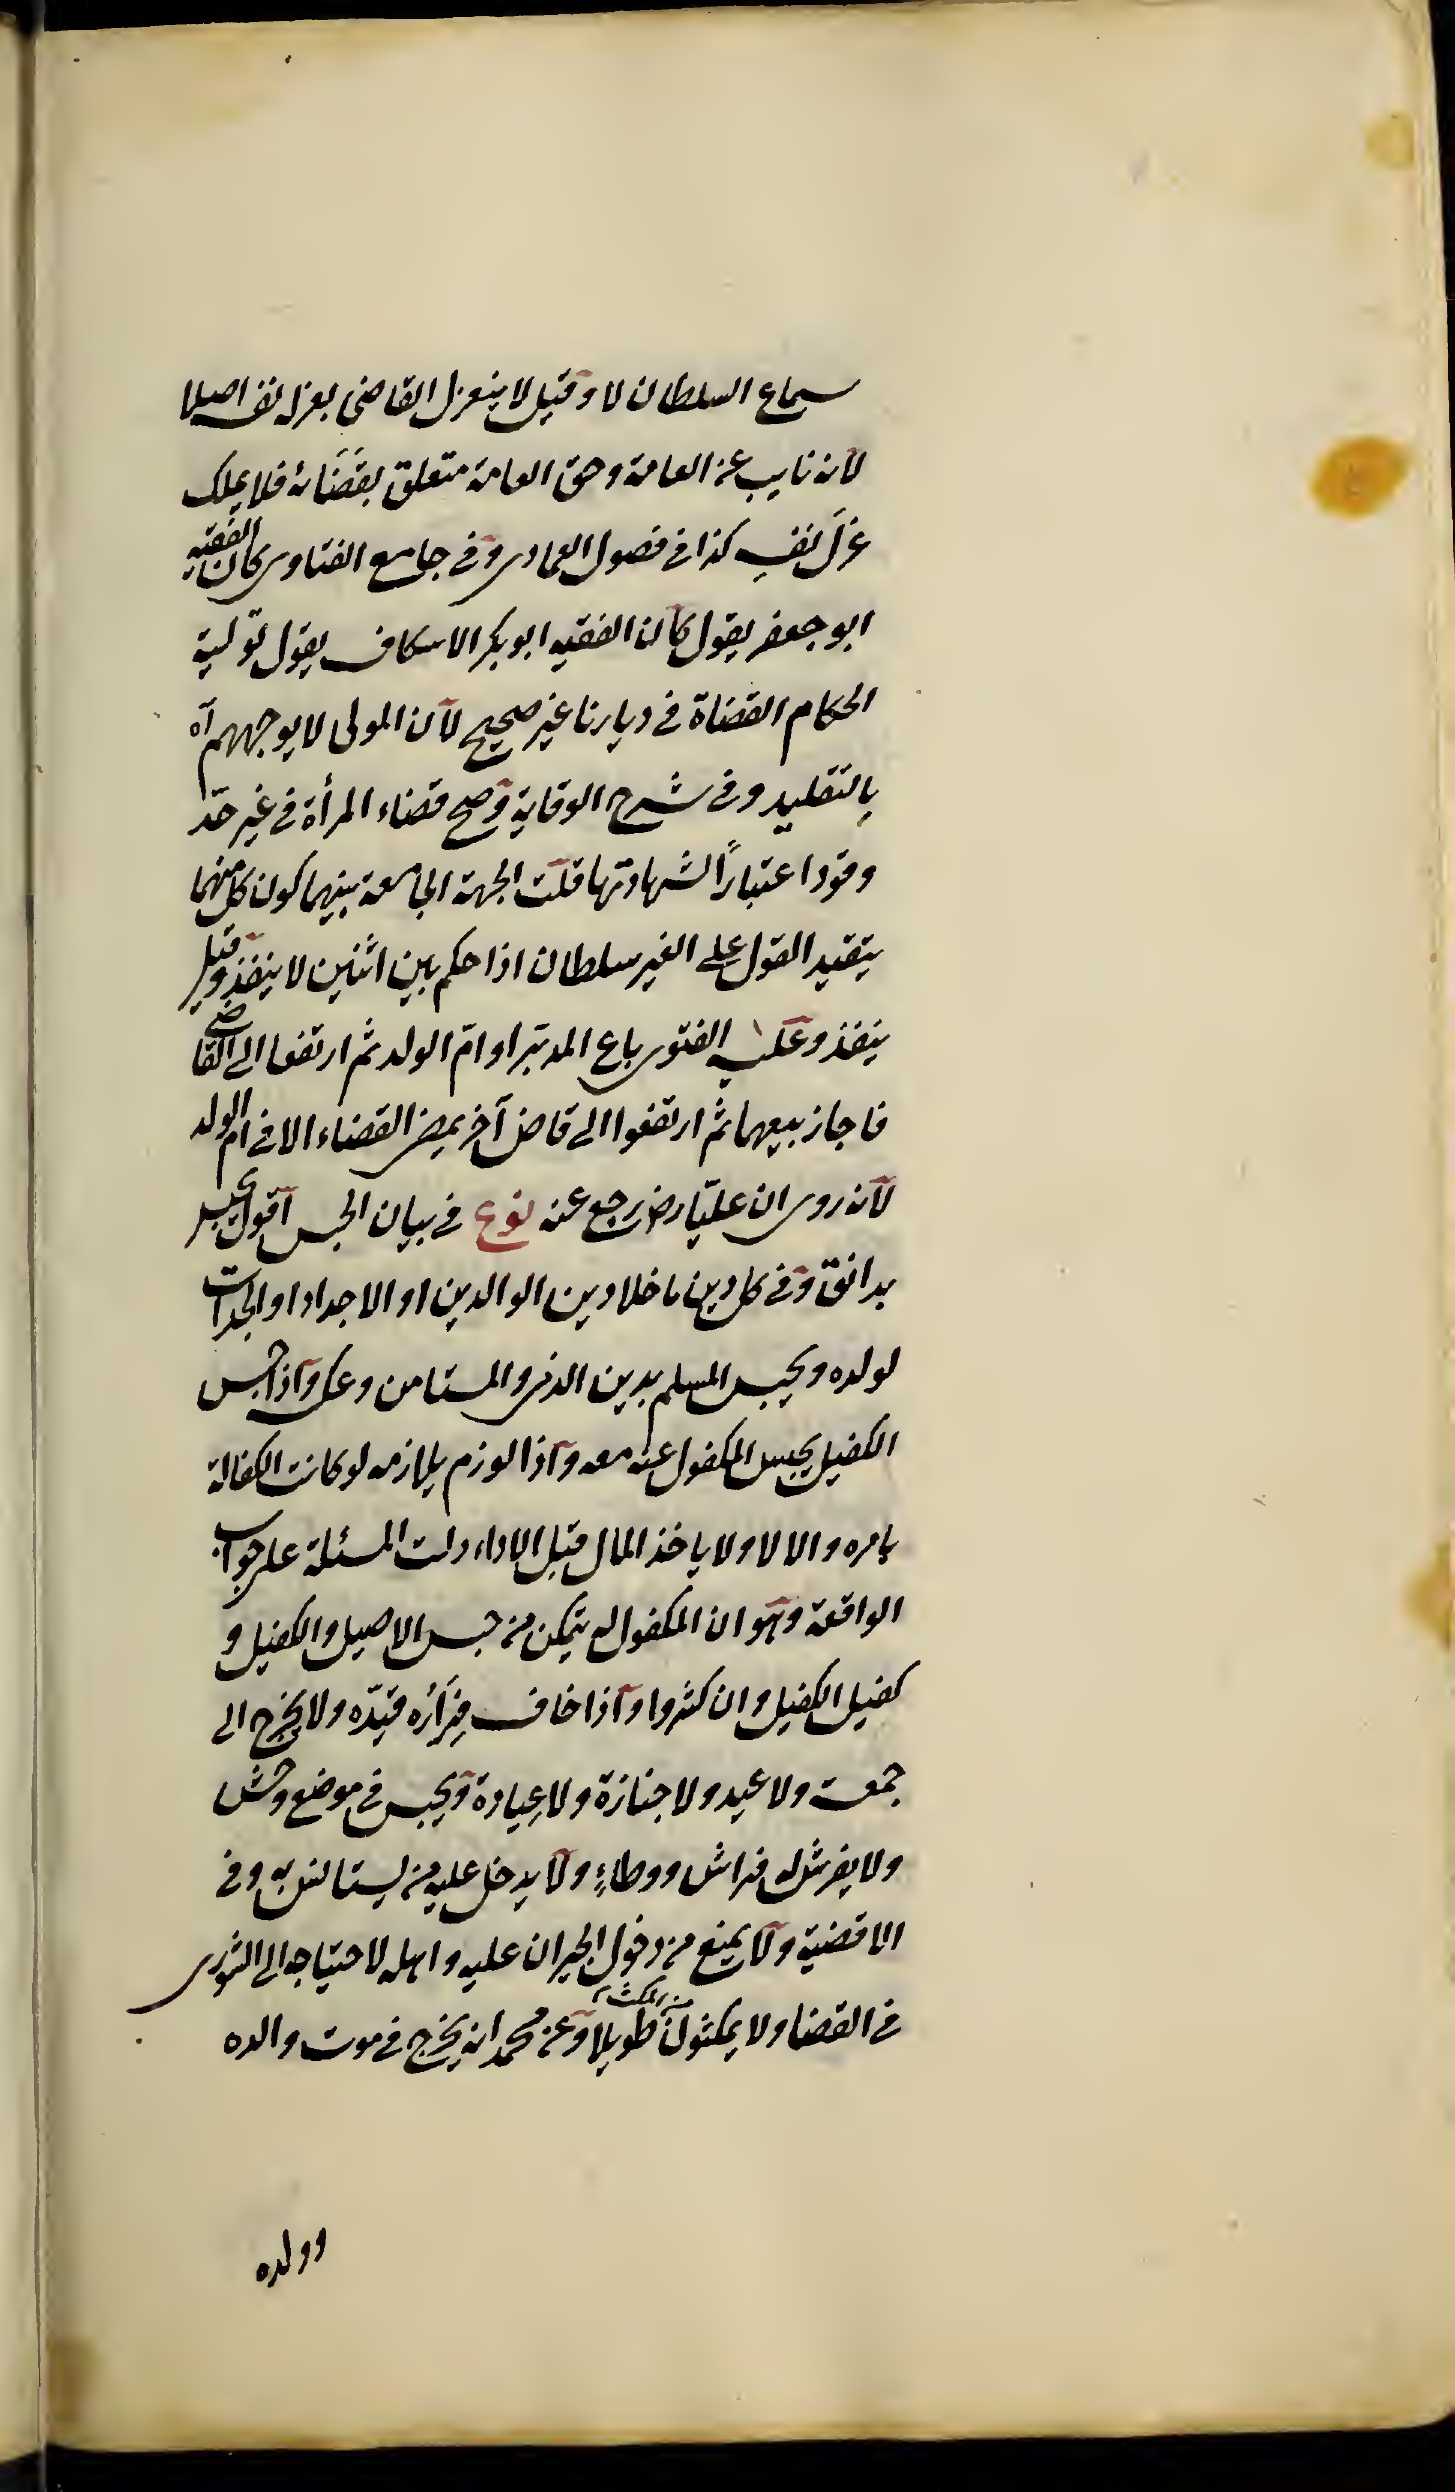 سماع السلطان لا وقيل لا ينعزل القاضى بعزله نفسه اصلا
لانه نايب عن العامة وحق العامة متعلق بقضائه فلا يملك
عزل نفسه كذا فى فصول العمادى وفى جامع الفتاوى كان الفقيه
ابو جعفر يقول كان الفقيه ابو بكر الاسكاف يقول تولية
الحكام القضاة فى ديارنا غير صحيح لان المولى لا يوجههم
بالتقليد وفى شرح الوقاية وصح قضاء المرأة فى غير حد
وقود اعتبارًا لشهادتها قلت الجهة الجامعة بينهما كون كل منهما
يتقيد القول على الغير سلطان اذا حكم بين اثنين لا ينفذ وقيل
ينفذ وعليه الفتوى باع المدبر او ام الولد ثم ارتفعا الى القاضى
فاجاز بيعهما ثم ارتفعوا الى قاض آخر يمضى القضاء الا فى ام الولد
لانه روى ان عليّا رض رجع عنه نوع فى بيان الحبس اقول يحبس
بدانق وفى كل دين ما خلا دين الوالدين او الاجداد او الجدات
لولده ويحبس المسلم بدين الذمى والمستامن وعكسه واذا حبس
الكفيل يحبس المكفول عنه معه واذا لوزم يلازمه لو كانت الكفالة
بامره والا لا ولا ياخذ المال قبل الاداء دلت المسئلة على جواب
الواقعة وهو ان المكفول له يتمكن من حبس الاصيل والكفيل و
كفيل الكفيل وان كثروا واذا خاف فراره قيّده ولا يخرج الى
جمعة ولا عيد ولا جنازة ولا عيادة ويحبس فى موضع وحش
ولا يفرش له فراش ووطاء ولا يدخل عليه من يستانس به وفى
الاقضية ولا يمنع من دخول الجيران عليه واهله لاحتياجه الى الشورى
فى القضا ولا يمكثون من المكث طويلا وعن محمد انه يخرج فى موت والده
وولده